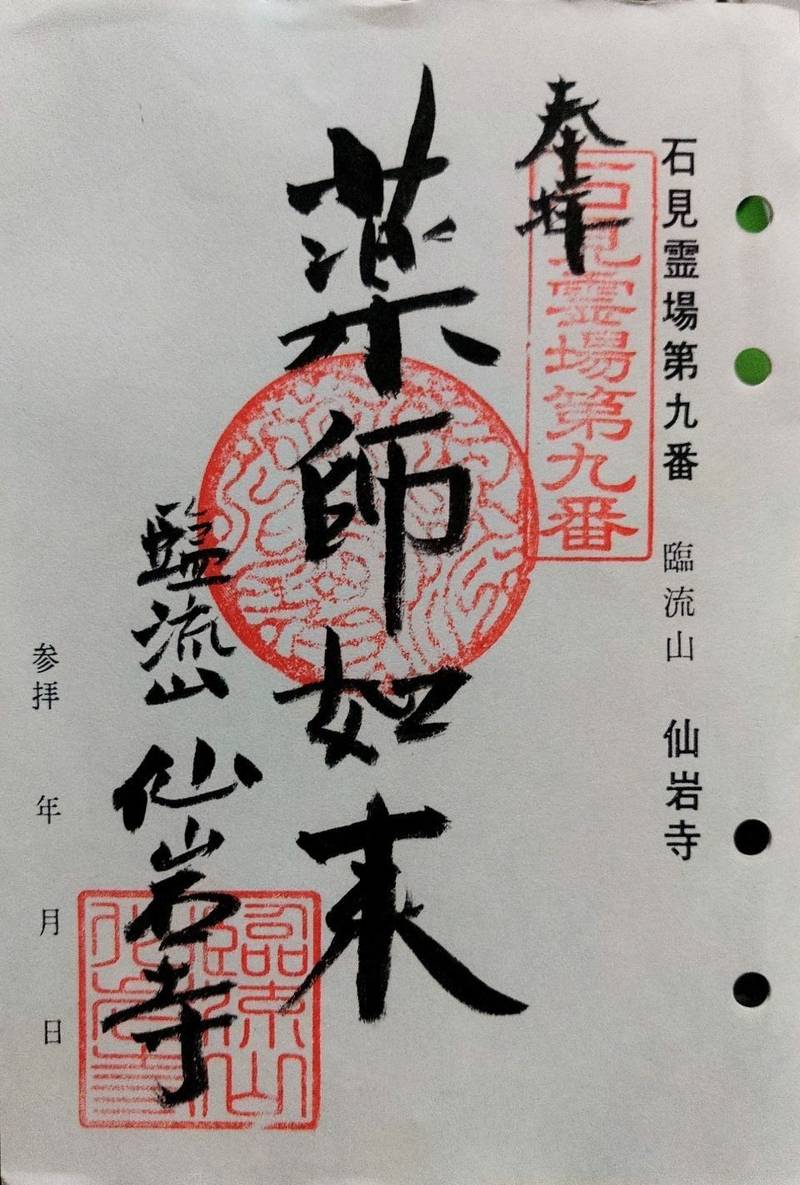 石見霊場第九番 臨流山 仙岩寺
奉拝
石見霊場第九番
薬師如来
臨流山 仙岩寺
参拝 年 月 日
臨流山
仙岩寺